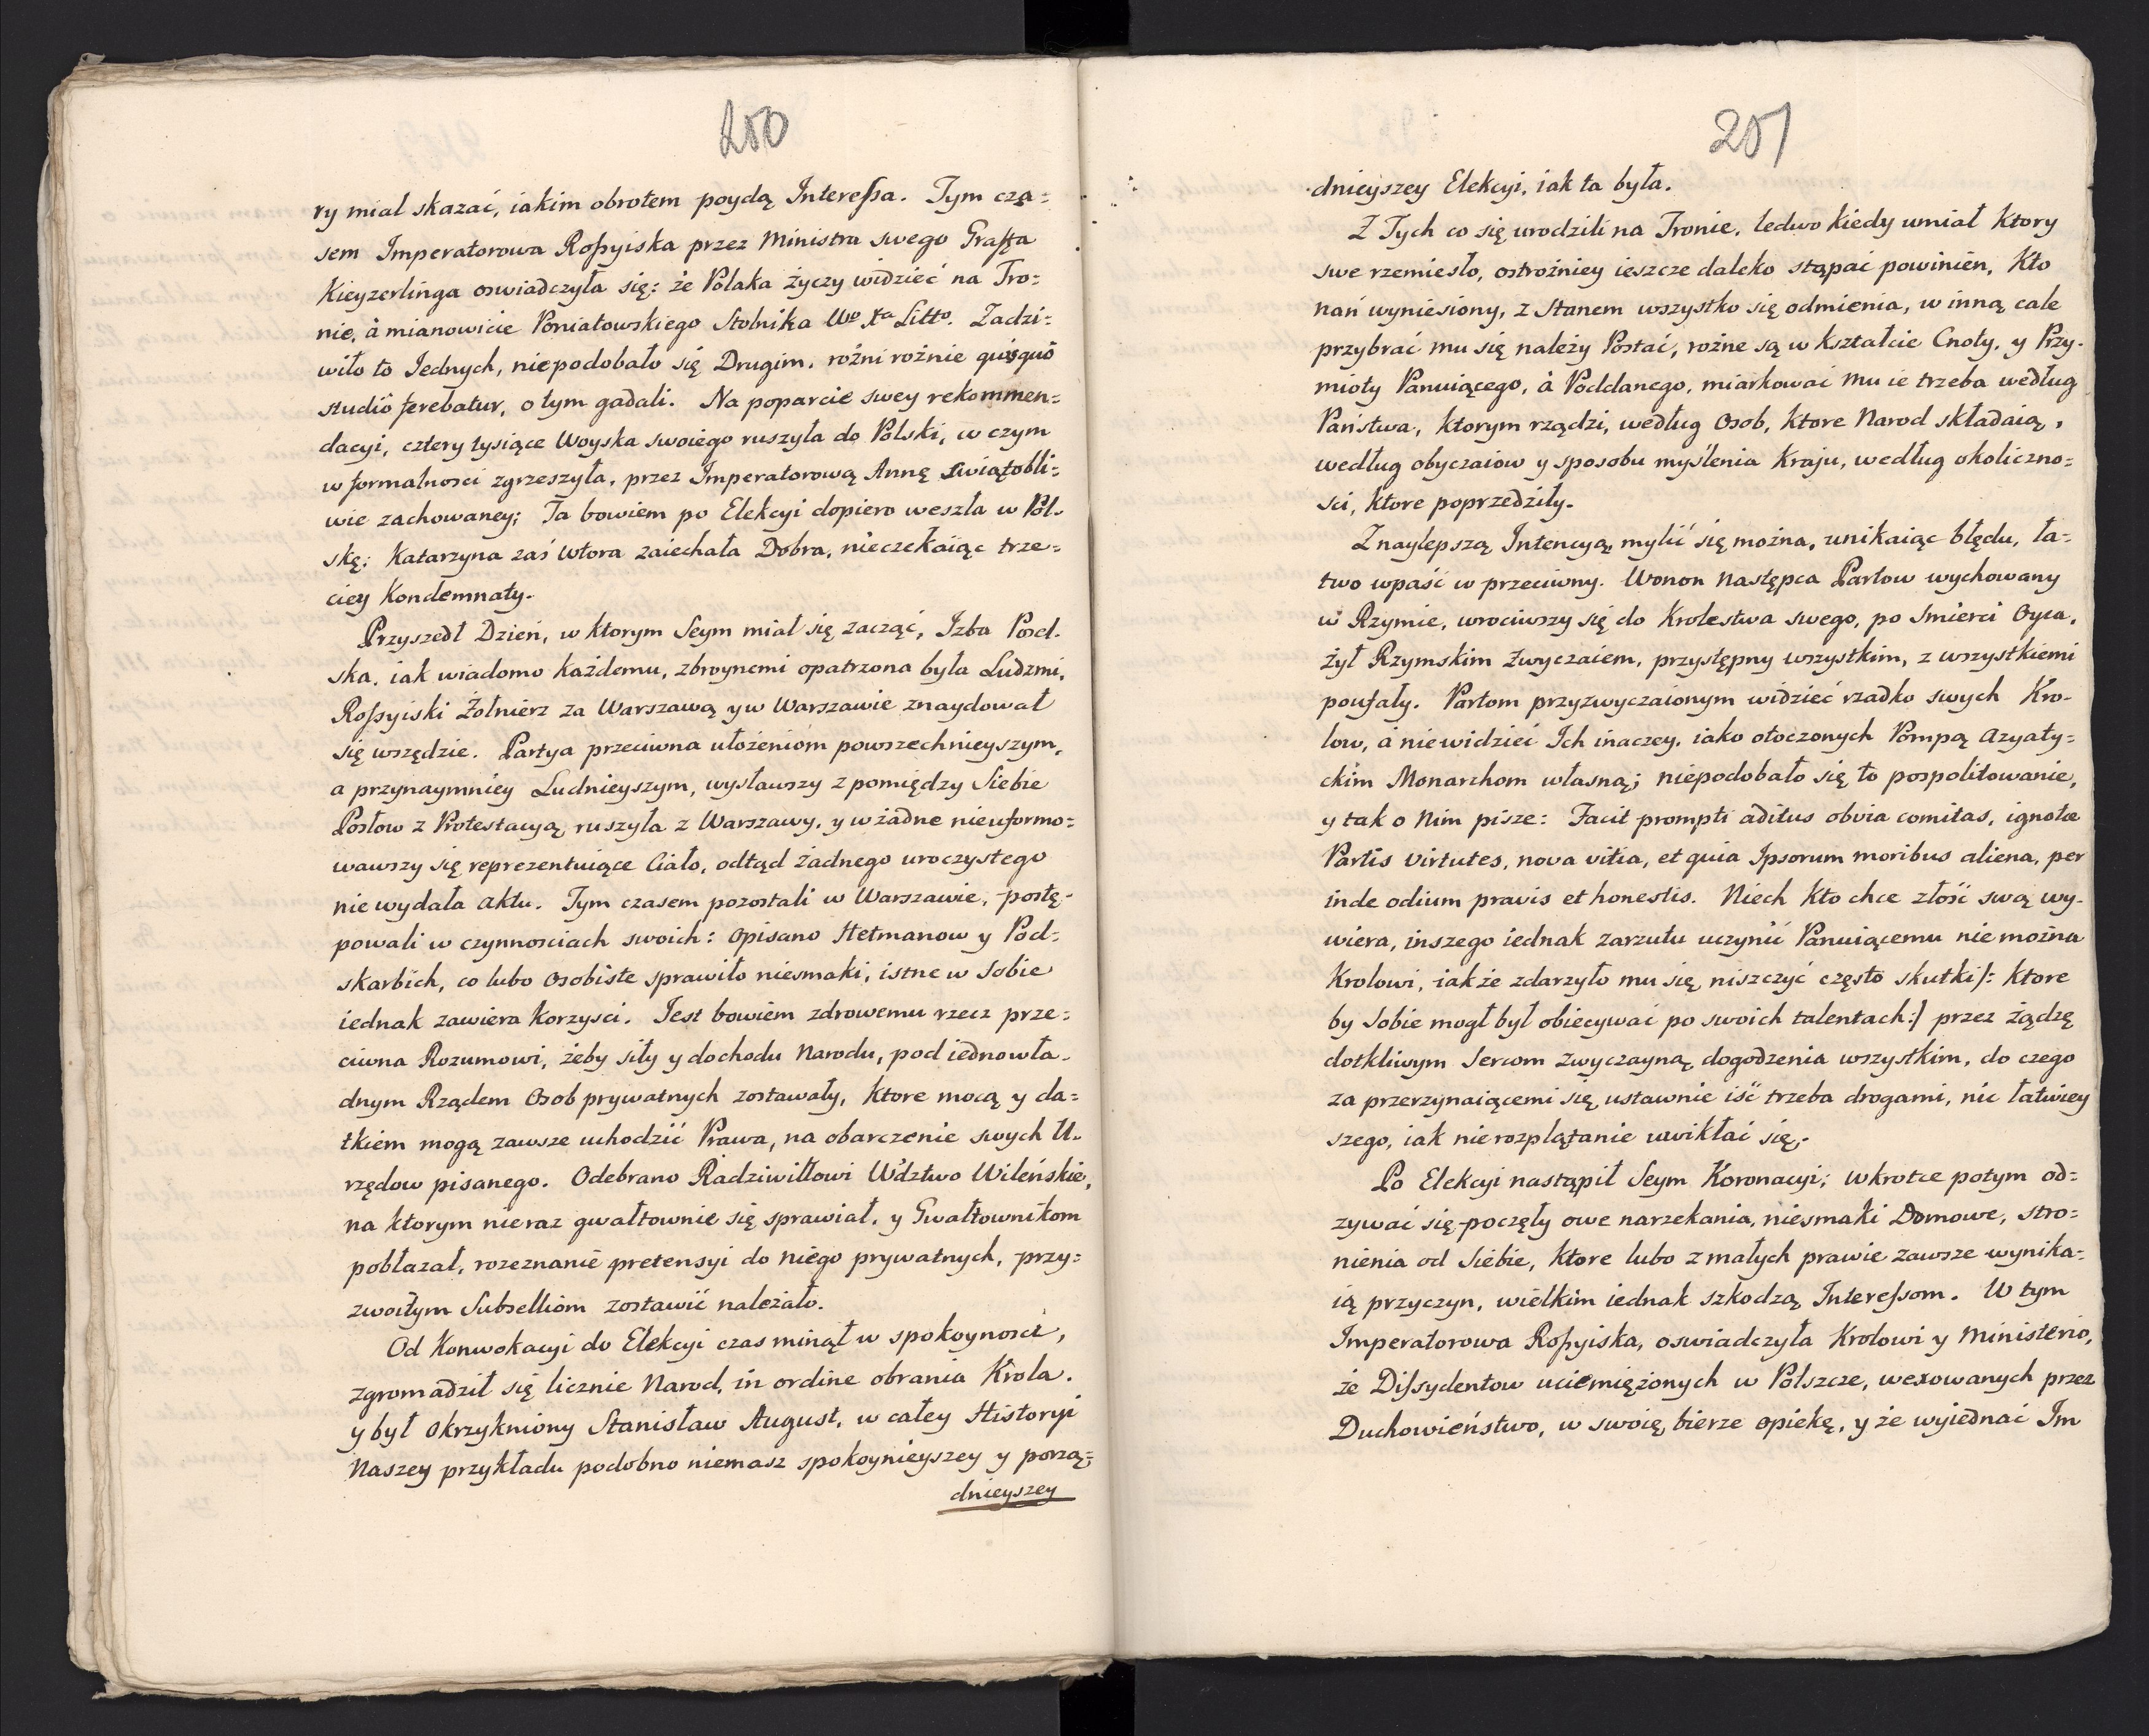 200
ry miał skazać, iakim obrotem poydą Interessa. Tym cza=
sem Imperatorowa Rossyiska przez Ministra swego Graffa
Kieyzerlinga oswiadczyła się: że Polaka życzy widzieć na Tro=
nie, à mianowicie Poniatowskiego Stolnika Wo Xa Litto. Zadzi=
wiło to Iednych, niepodobało się Drugim, rożni rożnie quisquô
studiô ferebatur, o tym gadali. Na poparcie swey rekommen=
dacyi, cztery tysiące Woyska swoiego ruszyła do Polski, w czym
w formalnosci zgrzeszyła, przez Imperatorową Annę swiątobli=
wie zachowaney; Ta bowiem po Elekcyi dopiero weszła w Pol-
skę; Katarzyna zaś Wtora zaiechała Dobra, nieczekaiąc trze=
ciey Kondemnaty.
Przyszedł Dzień, w ktorym Seym miał się zacząć, Izba Posel-
ska, iak wiadomo każdemu, zbroynemi opatrzona była Ludzmi,
Rossyiski Żołnierz za Warszawą y w Warszawie znaydował
się wszędzie. Partya przeciwna ułożeniom powszechnieyszym,
a przynaymniey Ludnieyszym, wysławszy z pomiędzy Siebie
Posłow z Protestacyą ruszyła z Warszawy, y w żadne nieuformo=
wawszy się reprezentuiące Ciało, odtąd żadnego uroczystego
nie wydała aktu. Tym czasem pozostali w Warszawie, postę-
powali w czynnosciach swoich: opisano Hetmanow y Pod=
skarbich, co lubo osobiste sprawiło niesmaki, istne w Sobie
iednak zawiera korzysci. Jest bowiem zdrowemu rzecz prze=
ciwna Rozumowi, żeby siły y dochodu Narodu, pod iednowła-
dnym Rządem Osob prywatnych zostawały, ktore mocą y da=
tkiem mogą zawsze uchodzić Prawa, na obarczenie swych U-
rzędow pisanego. Odebrano Radziwiłłowi Wdztwo Wileńskie,
na ktorym nieraz gwałtownie się sprawiał, y Gwałtownikom
pobłazał, rozeznanie pretensyi do niego prywatnych, przy=
zwoitym Subselliom zostawić należało.
Od Konwokacyi do Elekcyi czas minął w spokoynosci,
zgromadził się licznie Narod, in ordine obrania Krola.
y był okrzykniony Stanisław August, w całey Historyi
Naszey przykładu podobno niemasz spokoynieyszey y porzą=
dnieyszey
201
dnieyszey Elekcyi, iak ta była.
Z Tych co się urodzili na Tronie, ledwo kiedy umiał ktory
swe rzemiesło, ostrożniey ieszcze daleko stąpać powinien, Kto
nań wyniesiony, z Stanem wszystko się odmienia, w inną całe
przybrać mu się należy Postać, rożne są w kształcie Cnoty, y Przy-
mioty Panuiącego, à Poddanego, miarkować mu ie trzeba według
Państwa, ktorym rządzi, według Osob, ktore Narod składaią,
według obyczaiow y sposobu myślenia Kraju, według okoliczno=
sci, ktore poprzedziły.
Z naylepszą Intencyą mylić się można, unikaiąc błędu, ła=
two wpaść w przeciwny. Wonon Następca Partow wychowany
w Rzymie, wrociwszy się do Krolestwa swego, po Smierci Oyca,
żył Rzymskim zwyczaiem, przystępny wszystkim, z wszystkiemi
poufały. Partom przyzwyczaionym widzieć rzadko swych Kro-
low, à niewidzieć Ich inaczey, iako otoczonych Pompą Azyaty=
ckim Monarchom własną; niepodobało się to pospolitowanie,
y tak o Nim pisze: Facit prompti aditus obvia comitas, ignotæ
Partis virtutes, nova vitia, et quia Ipsorum moribus aliena, per
inde odium pravis et honestis. Niech kto chce złość swą wy-
wiera, inszego iednak zarzutu uczynić Panuiącemu nie można
Krolowi, iak że zdarzyło mu się niszczyć często skutki /: ktore
by Sobie mogł był obiecywać po swoich talentach :/ przez żądzę
dotkliwym Sercom zwyczayną dogodzenia wszystkim, do czego
za przerzynaiącemi się ustawnie iść trzeba drogami, nic łatwiey
szego, iak nierozplątanie uwikłać się.
Po Elekcyi nastąpił Seym Koronacyi; wkrotce potym od=
zywać się poczęły owe narzekania, niesmaki Domowe, stro=
nienia od Siebie, ktore lubo z małych prawie zawsze wynika=
ią przyczyn, wielkim iednak szkodzą Interessom. W tym
Imperatorowa Rossyiska, oswiadczyła Krolowi y Ministerio,
że Dissydentow uciemiężonych w Polszcze, wexowanych przez
Duchowieństwo, w swoię bierze opiekę, y że wyiednać Im